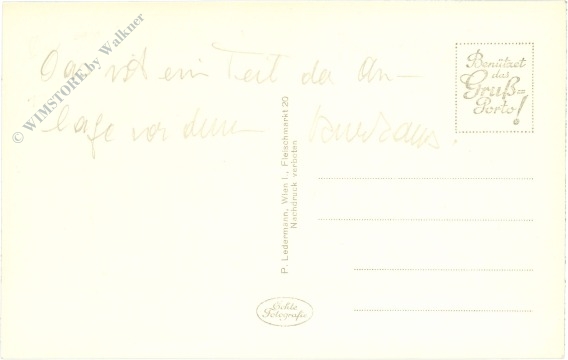 © WIMSTORE by Walkner
Das ist ein Teil der An-
lage vor dem
Benützet
das
Gruß=
Porto!
P. Ledermann, Wien I., Fleischmarkt 20
Nachdruck verboten
Echte
Fotografie